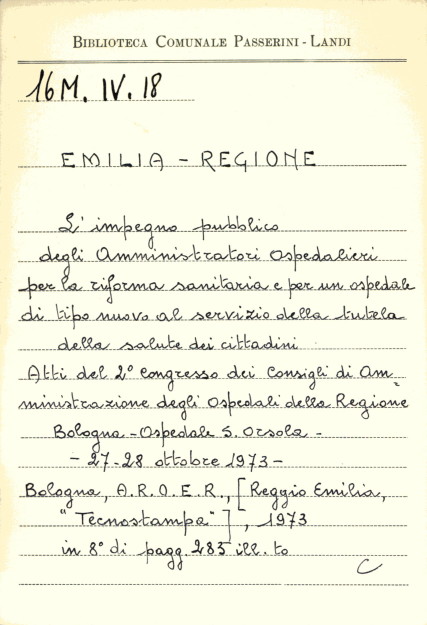 BIBLIOTECA COMUNALE PASSERINI - LANDI
16M. IV. 18
EMILIA - REGIONE
L'impegno pubblico
degli Amministratori Ospedalieri
per la riforma sanitaria e per un ospedale
di tipo nuovo al servizio della tutela
della salute dei cittadini
Atti del 2° congresso dei Consigli di Am-
ministrazione degli Ospedali della Regione
Bologna - Ospedale S. Orsola -
- 27-28 ottobre 1973 -
Bologna, A.R.O.E.R., [Reggio Emilia,
"Tecnostampa"], 1973
in 8° di pagg. 283 ill. to
C